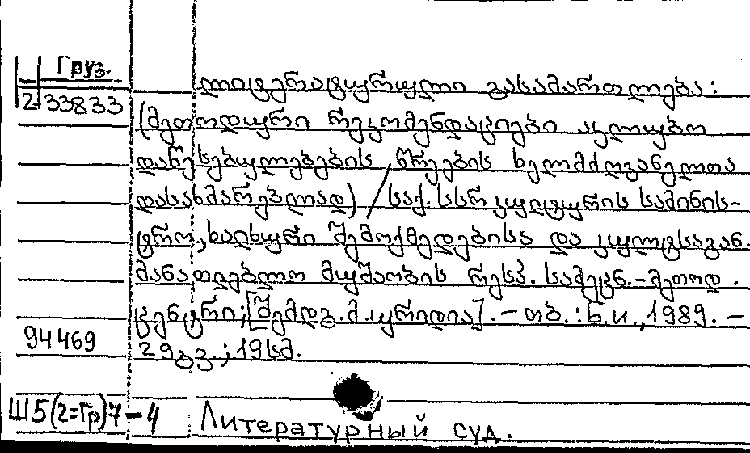 Груз.
2 33833
ლიტერატურული გასამართლება:
(მეთოდური რეკომენდაციები კლუბო
დაწესებულებების წრეების ხელმძღვანელთა
დასახმარებლად) / საქ. სსრ კულტურის სამინის-
ტრო, ხალხური შემოქმედებისა და კულტსაგან.
მანათლებლო მუშაობის რესპ. სამეცნ.-მეთოდ.
ცენტრი; [შემდგ. მ. ყრიდია]. – თბ.: ბ. ი., 1989. –
94469
29 გვ.; 19 სმ.
Ш5(2=Гр)7-4
Литературный суд.